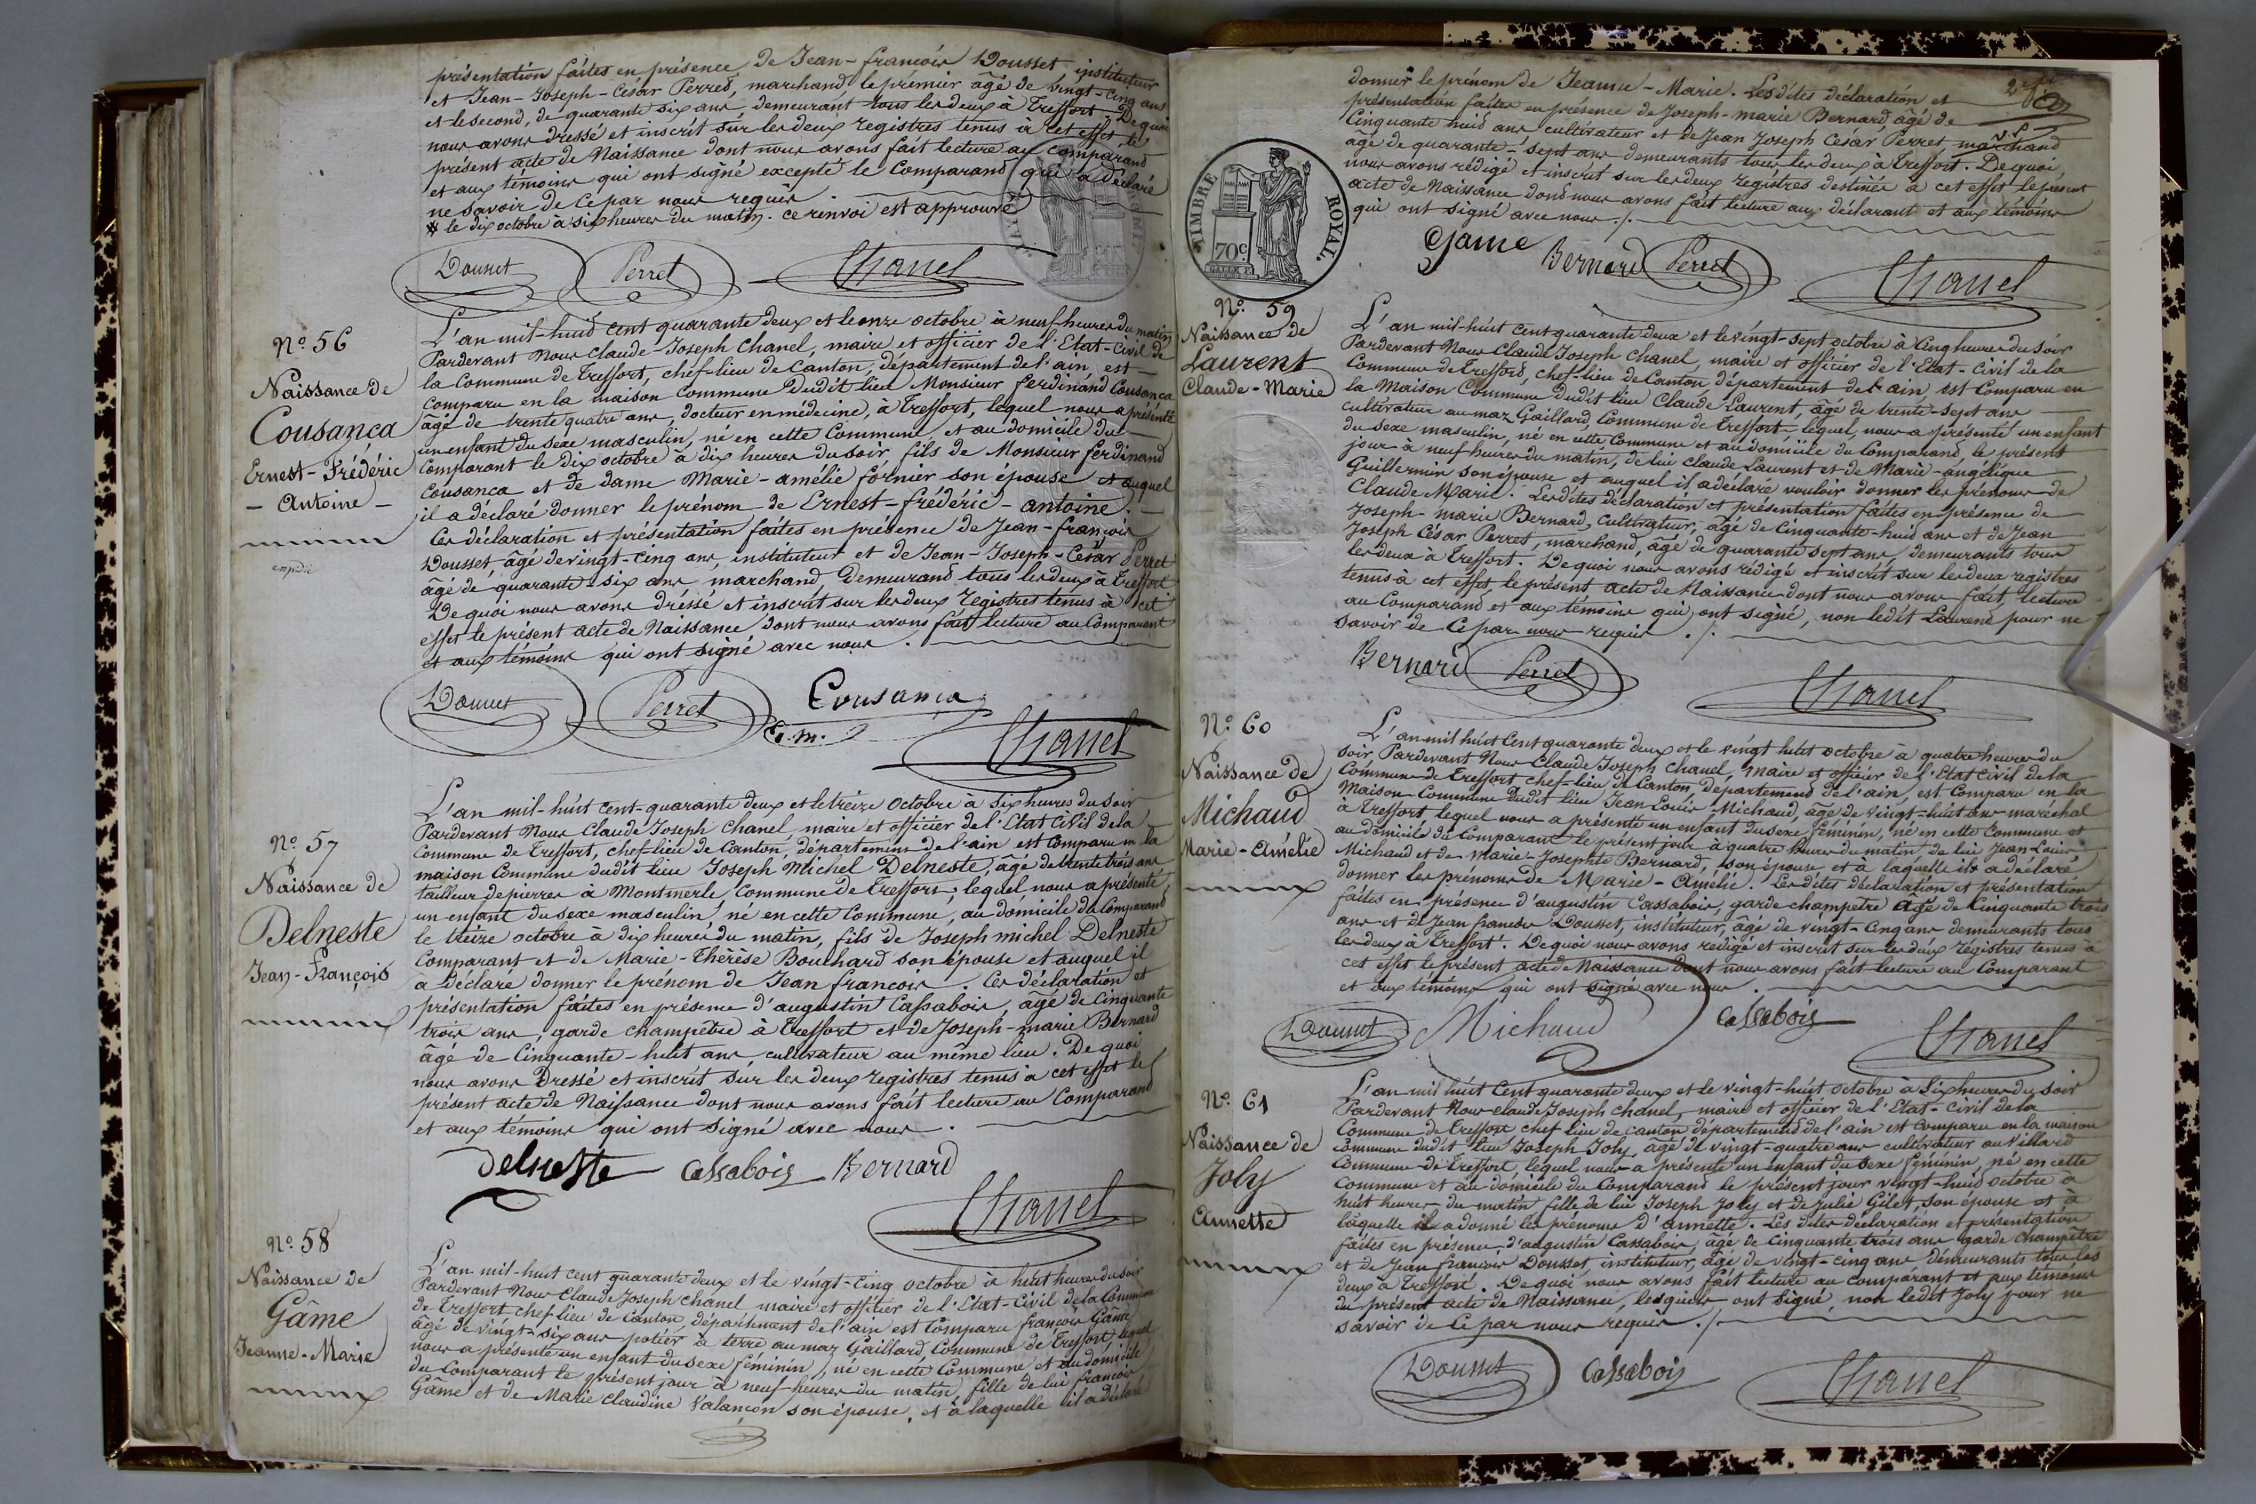 présentation faites en présence de Jean-françois Dousset instituteur
et Jean-Joseph-César Perret, marchand le prémier âgé de vingt-cinq ans
et le second, de quarante six ans, demeurant tous les deux à Treffort. De quoi
nous avons dressé et inscrit sur les deux registres tenus à cet effet le
présent acte de Naissance dont nous avons fait lecture au comparand
et aux témoins qui ont signé excepté le Comparand qui a déclaré
ne savoir de ce par nous requis
* le dix octobre à six heures du matin. ce renvoi est approuvé
Dousset Perret Chanel
Nº 56
Naissance de
Cousança
Ernest-Frédéric
- Antoine -
expédié
L'an mil-huit cent quarante deux et le onze octobre à neuf heures du matin
Pardevant Nous Claude-Joseph Chanel, maire et officier de l'Etat-Civil de
la Commune de Treffort, chef-lieu de Canton, département de l'ain, est
Comparu en la maison Commune dudit lieu Monsieur ferdinand Cousança
âgé de trente quatre ans, docteur en médecine, à Treffort, lequel nous a présenté
un enfant du sexe masculin, né en cette Commune et au domicile du
Comparant le dix octobre à dix heures du soir, fils de Monsieur ferdinand
Cousança et de dame Marie-amélie fornier son épouse et auquel
il a déclaré donner le prénom de Ernest-frédéric-antoine.
Ces déclaration et présentation faites en présence de Jean-françois
Dousset, âgé de vingt-cinq ans, instituteur et de Jean-Joseph-César Perret
âgé de quarante-six ans, marchand, demeurand tous les deux à Treffort
De quoi nous avons dréssé et inscrit sur les deux registres tenus à cet
effet le présent acte de Naissance dont nous avons fait lecture au Comparant
et aux témoins qui ont signé avec nous.
Dousset Perret Cousança
d.m. Chanel
Nº 57
Naissance de
Delneste
Jean-François
L'an mil-huit cent-quarante deux et le treize octobre à six heures du soir
Pardevant Nous Claude Joseph Chanel, maire et officier de l'Etat Civil de la
Commune de Treffort, chef-lieu de Canton, département de l'ain est Comparu en la
maison Commune dudit lieu Joseph Michel Delneste, âgé de trente trois ans
tailleur de pierres à Montmerle, Commune de Treffort, lequel nous a présenté
un enfant du sexe masculin, né en cette Commune, au domicile du Comparand
le treize octobre à dix heures du matin, fils de Joseph michel Delneste
Comparant et de Marie-Thérèse Bouchard son épouse et auquel il
a déclaré donner le prénom de Jean françois. Ces déclaration et
présentation faites en présence d'augustin Cassabois, âgé de Cinquante
trois ans, garde champêtre à Treffort et de Joseph-marie Bernard
âgé de Cinquante-huit ans, cultivateur au même lieu. De quoi
nous avons Dressé et inscrit sur les deux registres tenus à cet effet le
présent acte de Naissance dont nous avons fait lecture au Comparand
et aux témoins qui ont signé avec nous.
Delneste Cassabois Bernard
Chanel
Nº 58
Naissance de
Gâme
Jeanne-Marie
L'an mil-huit cent quarante deux et le vingt-cinq octobre à huit heures du soir
Pardevant Nous Claude Joseph Chanel maire et officier de l'Etat-Civil de la Commune
de Treffort, chef-lieu de Canton, département de l'ain est Comparu françois Gâme
âgé de vingt-six ans potier à terre au maz Gaillard, Commune de Treffort, lequel
nous a présenté un enfant du sexe féminin, né en cette Commune et au domicile
du Comparant le présent jour à neuf heures du matin, fille de lui françois
Gâme et de Marie Claudine Valançon son épouse, et à laquelle il a déclaré
2
donner le prénom de Jeanne-Marie. Les dites déclaration et
présentation faites en présence de Joseph-marie Bernard âgé de
Cinquante huit ans cultivateur et de Jean Joseph César Perret, marchand
âgé de quarante-sept ans demeurants tous les deux à Treffort. De quoi,
nous avons rédigé et inscrit sur les deux registres destinés à cet effet le présent
acte de Naissance dont nous avons fait lecture aux déclarant et aux témoins
qui ont signé avec nous ./.
TIMBRE ROYAL.
70 c.
Game Bernard Perret
Chanel
Nº 59
Naissance de
Laurent
Claude-Marie
L'an mil-huit cent quarante deux et le vingt-sept octobre à Cinq heures du soir
Pardevant Nous Claude Joseph Chanel, maire et officier de l'Etat-Civil de la
Commune de Treffort, chef-lieu de Canton département de l'ain, est Comparu en
la Maison Commune dudit lieu Claude Laurent, âgé de trente-sept ans
cultivateur au maz Gaillard, Commune de Treffort lequel, nous a présenté un enfant
du sexe masculin, né en cette Commune et au domicile du Comparand, le présent
jour à neuf heures du matin, de lui Claude Laurent et de Marie-angélique
Guillermin son épouse et auquel il a déclaré vouloir donner les prénoms de
Claude Marie. Les dites déclaration et présentation faites en présence de
Joseph-marie Bernard, Cultivateur, âgé de Cinquante-huit ans et de Jean
Joseph César Perret, marchand, âgé de quarante sept ans, demeurants tous
les deux à Treffort. De quoi nous avons rédigé et inscrit sur les deux registres
tenus à cet effet le présent acte de Naissance dont nous avons fait lecture
au Comparand et aux témoins qui ont signé, non ledit Laurent pour ne
savoir de Ce par nous requis ./.
Bernard Perret
Chanel
Nº 60
Naissance de
Michaud
Marie-Amélie
L'an mil huit Cent quarante deux et le vingt huit octobre à quatre heures du
soir, Pardevant Nous Claude Joseph Chanel, Maire et officier de l'Etat Civil de la
Commune de Treffort chef-lieu de Canton département de l'ain, est Comparu en la
Maison Commune dudit lieu Jean Louis Michaud, âgé de vingt-huit ans maréchal
à Treffort, lequel nous a présenté un enfant du sexe féminin, né en cette Commune et
au domicile du Comparant le présent jour à quatre heures du matin de lui Jean Louis
Michaud et de Marie-Josephte Bernard, son épouse, et à laquelle ils a déclaré
donner les prénoms de Marie-Amélie. Les dites déclaration et présentation
faites en présence d'augustin Cassabois, garde champêtre âgé de Cinquante trois
ans et de Jean françois Dousset, instituteur, âgé de vingt-Cinq ans demeurants tous
les deux à Treffort. De quoi nous avons rédigé et inscrit sur les deux régistres tenus à
cet effet le présent acte de Naissance dont nous avons fait lecture au Comparant
et aux témoins qui ont signé avec nous.
Dousset Michaud Cassabois Chanel
Nº 61
Naissance de
Joly
Annette
L'an mil huit Cent quarante deux et le vingt-huit octobre à Six heures du soir
Pardevant Nous Claude Joseph Chanel, maire et officier de l'Etat-Civil de la
Commune de Treffort chef lieu de Canton département de l'ain est Comparu en la maison
Commune dudit lieu Joseph Joly, âgé de vingt-quatre ans cultivateur au Villard
Commune de Treffort, lequel nous a présenté un enfant du sexe féminin, né en cette
Commune et au domicile du Comparand le présent jour vingt-huit octobre à
huit heures du matin fille de lui Joseph Joly et de Julie Gilet, son épouse et à
laquelle il a donné les prénoms d'annette. Les dites déclaration et présentation
faites en présence d'augustin Cassabois, âgé de Cinquante trois ans garde champêtre
et de Jean françois Dousset, instituteur, âgé de vingt-cinq ans demeurants tous les
deux à Treffort. De quoi nous avons fait lecture au comparant et aux témoins
du présent acte de Naissance, lesquels ont signé, non ledit Joly pour ne
savoir de Ce par nous requis ./.
Dousset Cassabois Chanel